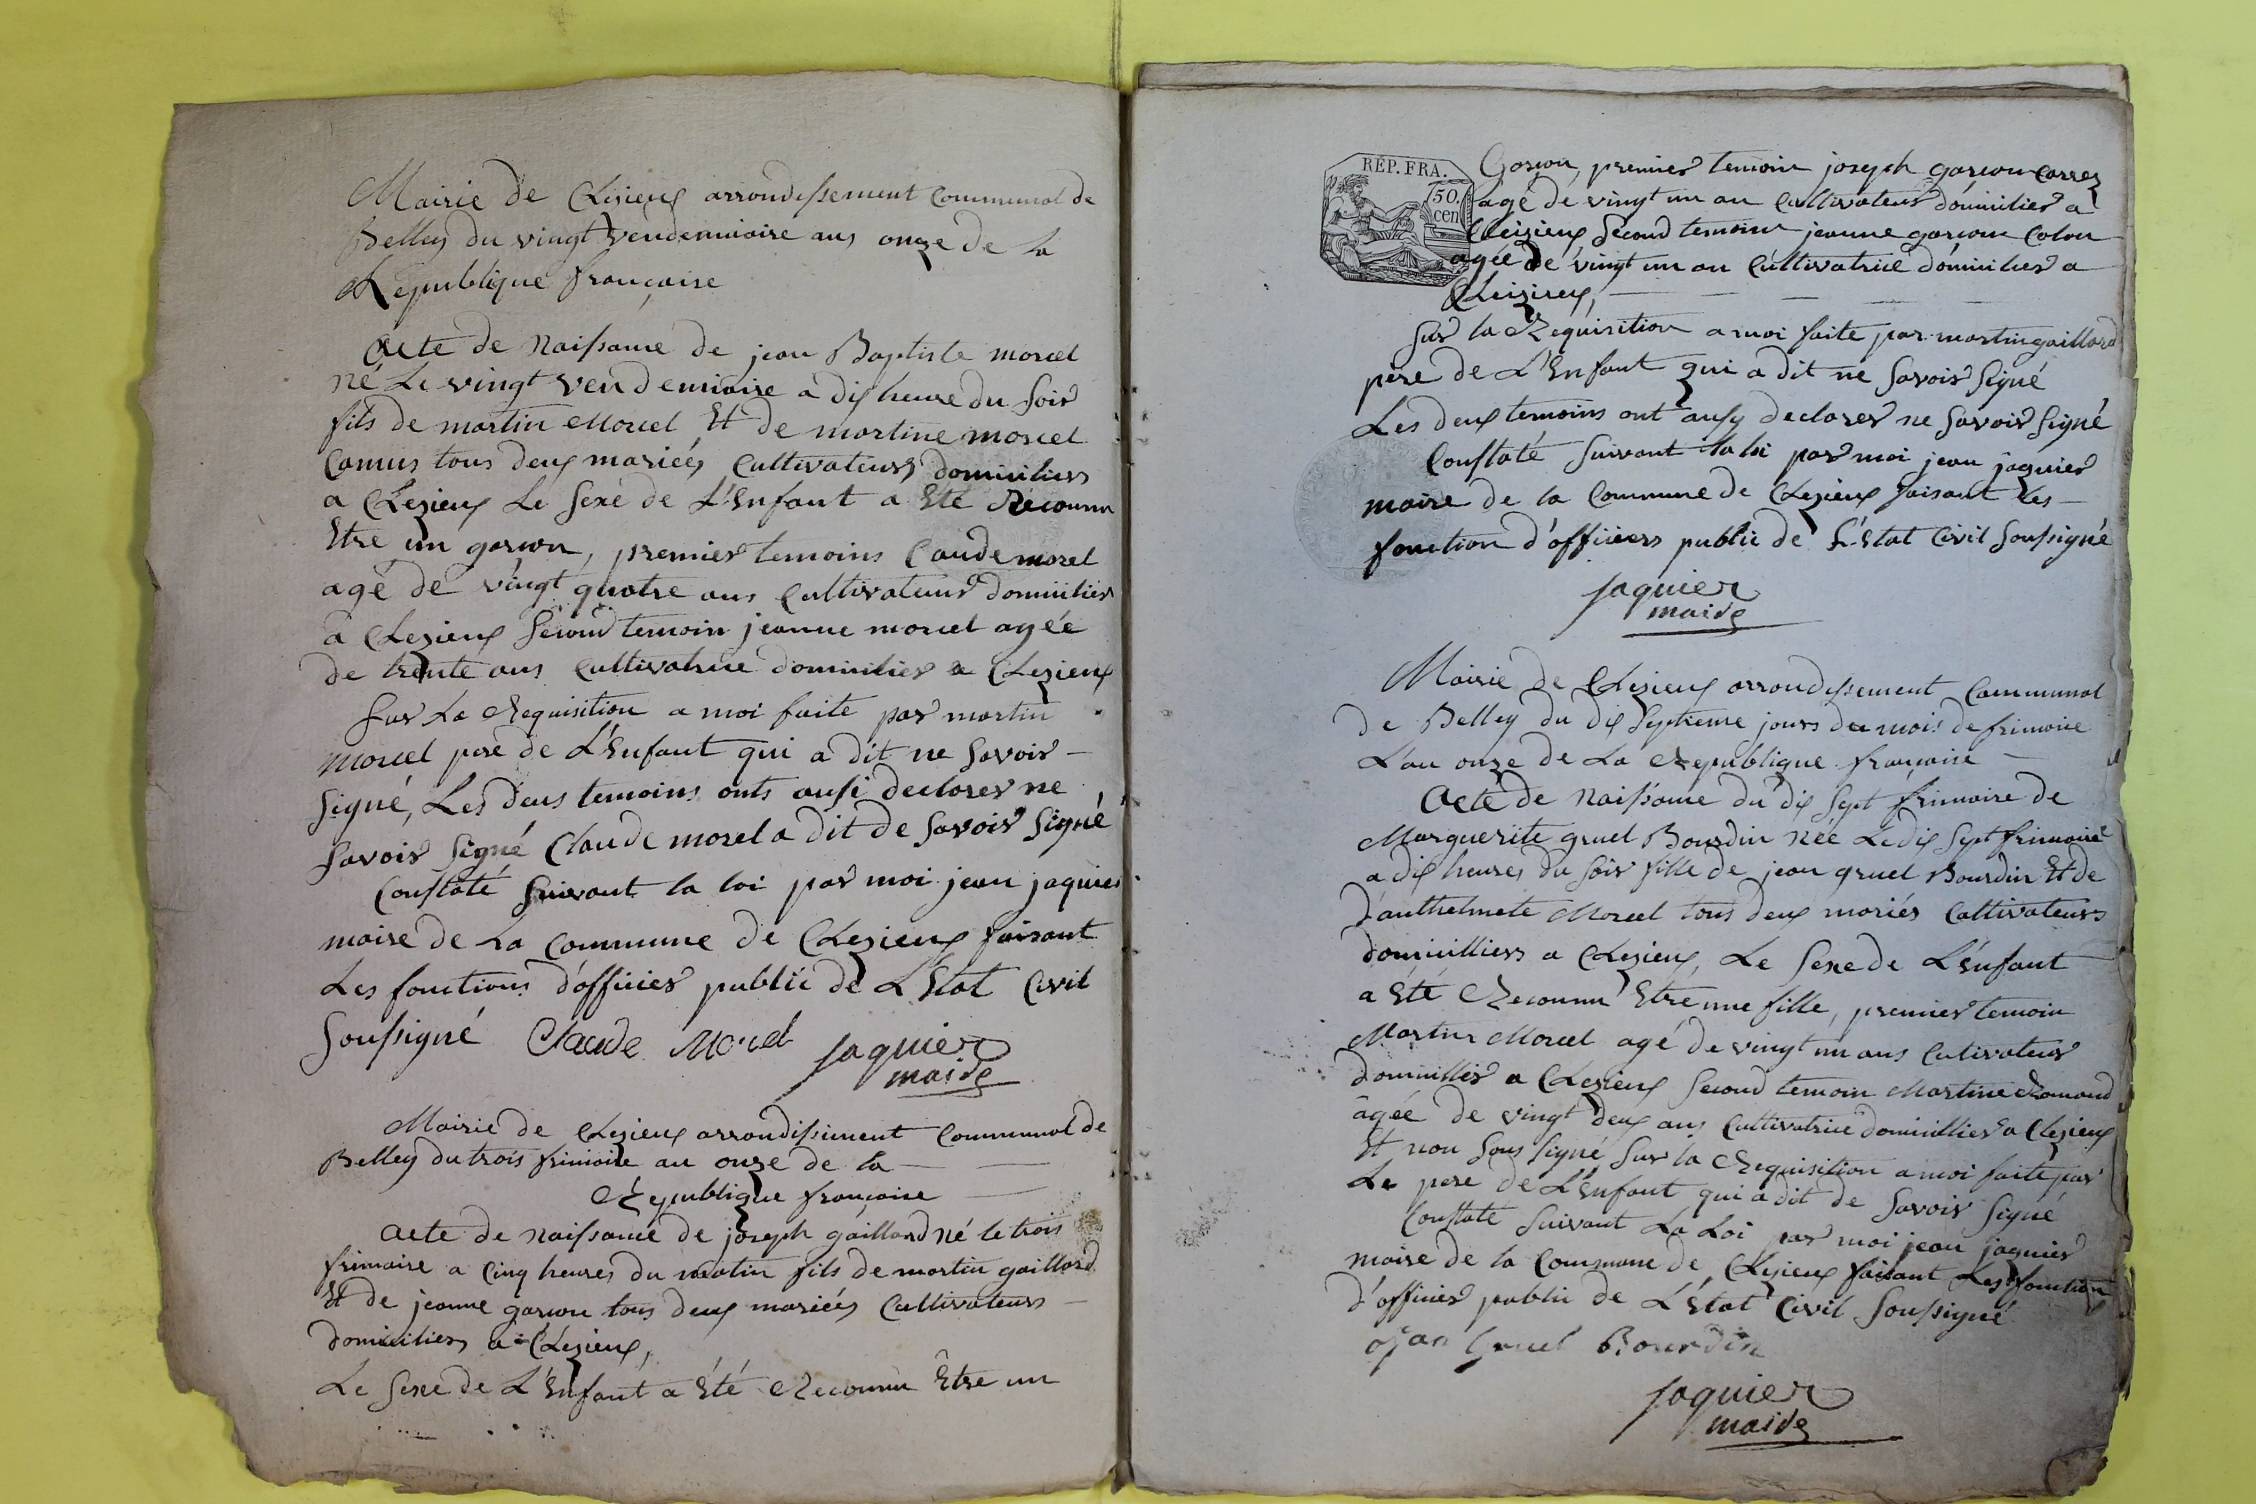 Mairie de Chezieux arrondissement Communal de
Belley du vingt vendemiaire ans onze de la
Republique française
Acte de Naissance de jean Baptiste morcel
né Le vingt vendemiaire a dix heure du soir
fils de martin Morcel Et de martine morcel
Camus tous deux mariés cultivateurs domiciliers
a Chezieux Le sexe de L'Enfant a Eté Reconnu
Etre un garcon, premier temoins Caude morel
agé de vingt quatre ans Cultivateur domicilier
a Chezieux second temoin jeanne morcel agée
de trente ans Cultivatrice domicilier a Chezieux
sur La Requisition a moi faite par martin
morcel pere de L'Enfant qui a dit ne savoir
signé, Les deus temoins onts aussi declarer ne
savoir signé Claude morel a dit de savoir signé
Constaté suivant la loi par moi jean jaquier
maire de La Commune de Chezieux faisant
Les fonctions d'officier public de L'Etat Civil
soussigné Claude Morel jaquier
maire
Mairie de Chezieux arrondissiment Communal de
Belley du trois frimaire an onze de la
Republique françaire
Acte de naissance de joseph gaillard né le trois
frimaire a Cinq heures du matin fils de martin gaillard
Et de jeanne garcon tous deux mariées Cultivateurs
domiciliers a Chezieux,
Le sexe de L'Enfant a Eté Reconnu Etre un
RÉP. FRA.
50.
cen
Garcon, premier temoin joseph garcon Carrez
agé de vingt un an Cultivateur domicilier a
Cheizieux second temoin jeanne garcon Colon
agée de vingt un an Cultivatrice domicilier a
Cheizieux,
sur la Requisition a moi faite par martin gaillard
pere de L'Enfant qui a dit ne savoir signé
Les deux temoins ont aussy declarer ne savoir signé
Constaté suivant la loi par moi jean jaquier
maire de la Commune de Chezieux faisant les
fonction d'officiers public de L'Etat Civil soussigné
jaquier
maire
Mairie de Chezieux arrondissement Communal
de Belley du dix septieme jours du mois de frimaire
L'an onze de La Republique françaire
Acte de Naissance du dix sept frimaire de
Marguerite gruel Bourdin née Le dix sept frimaire
a dix heures du soir fille de jean gruel Bourdin Et de
d'anthelmete Morcel tous deux mariés Cultivateurs
domicilliers a Chezieux, Le sexe de L'Enfant
a Eté Reconnu Etre une fille, premier temoin
Martin Morcel agé de vingt un ans Cutivateur
domicillier a Chezieux second temoin Martine Ramand
agée de vingt deux ans Cultivatrice domicillier a Chezieux
Et non sous signé sur la Requisition a moi faite par
Le pere de L'Enfant qui a dit de savoir signé
Constaté suivant La Loi par moi jean jaquier
maire de la Commune de Chezieux faisant Les fonction
d'officier public de L'Etat Civil soussigné
Jan Gruel Bourdin
jaquier
maire